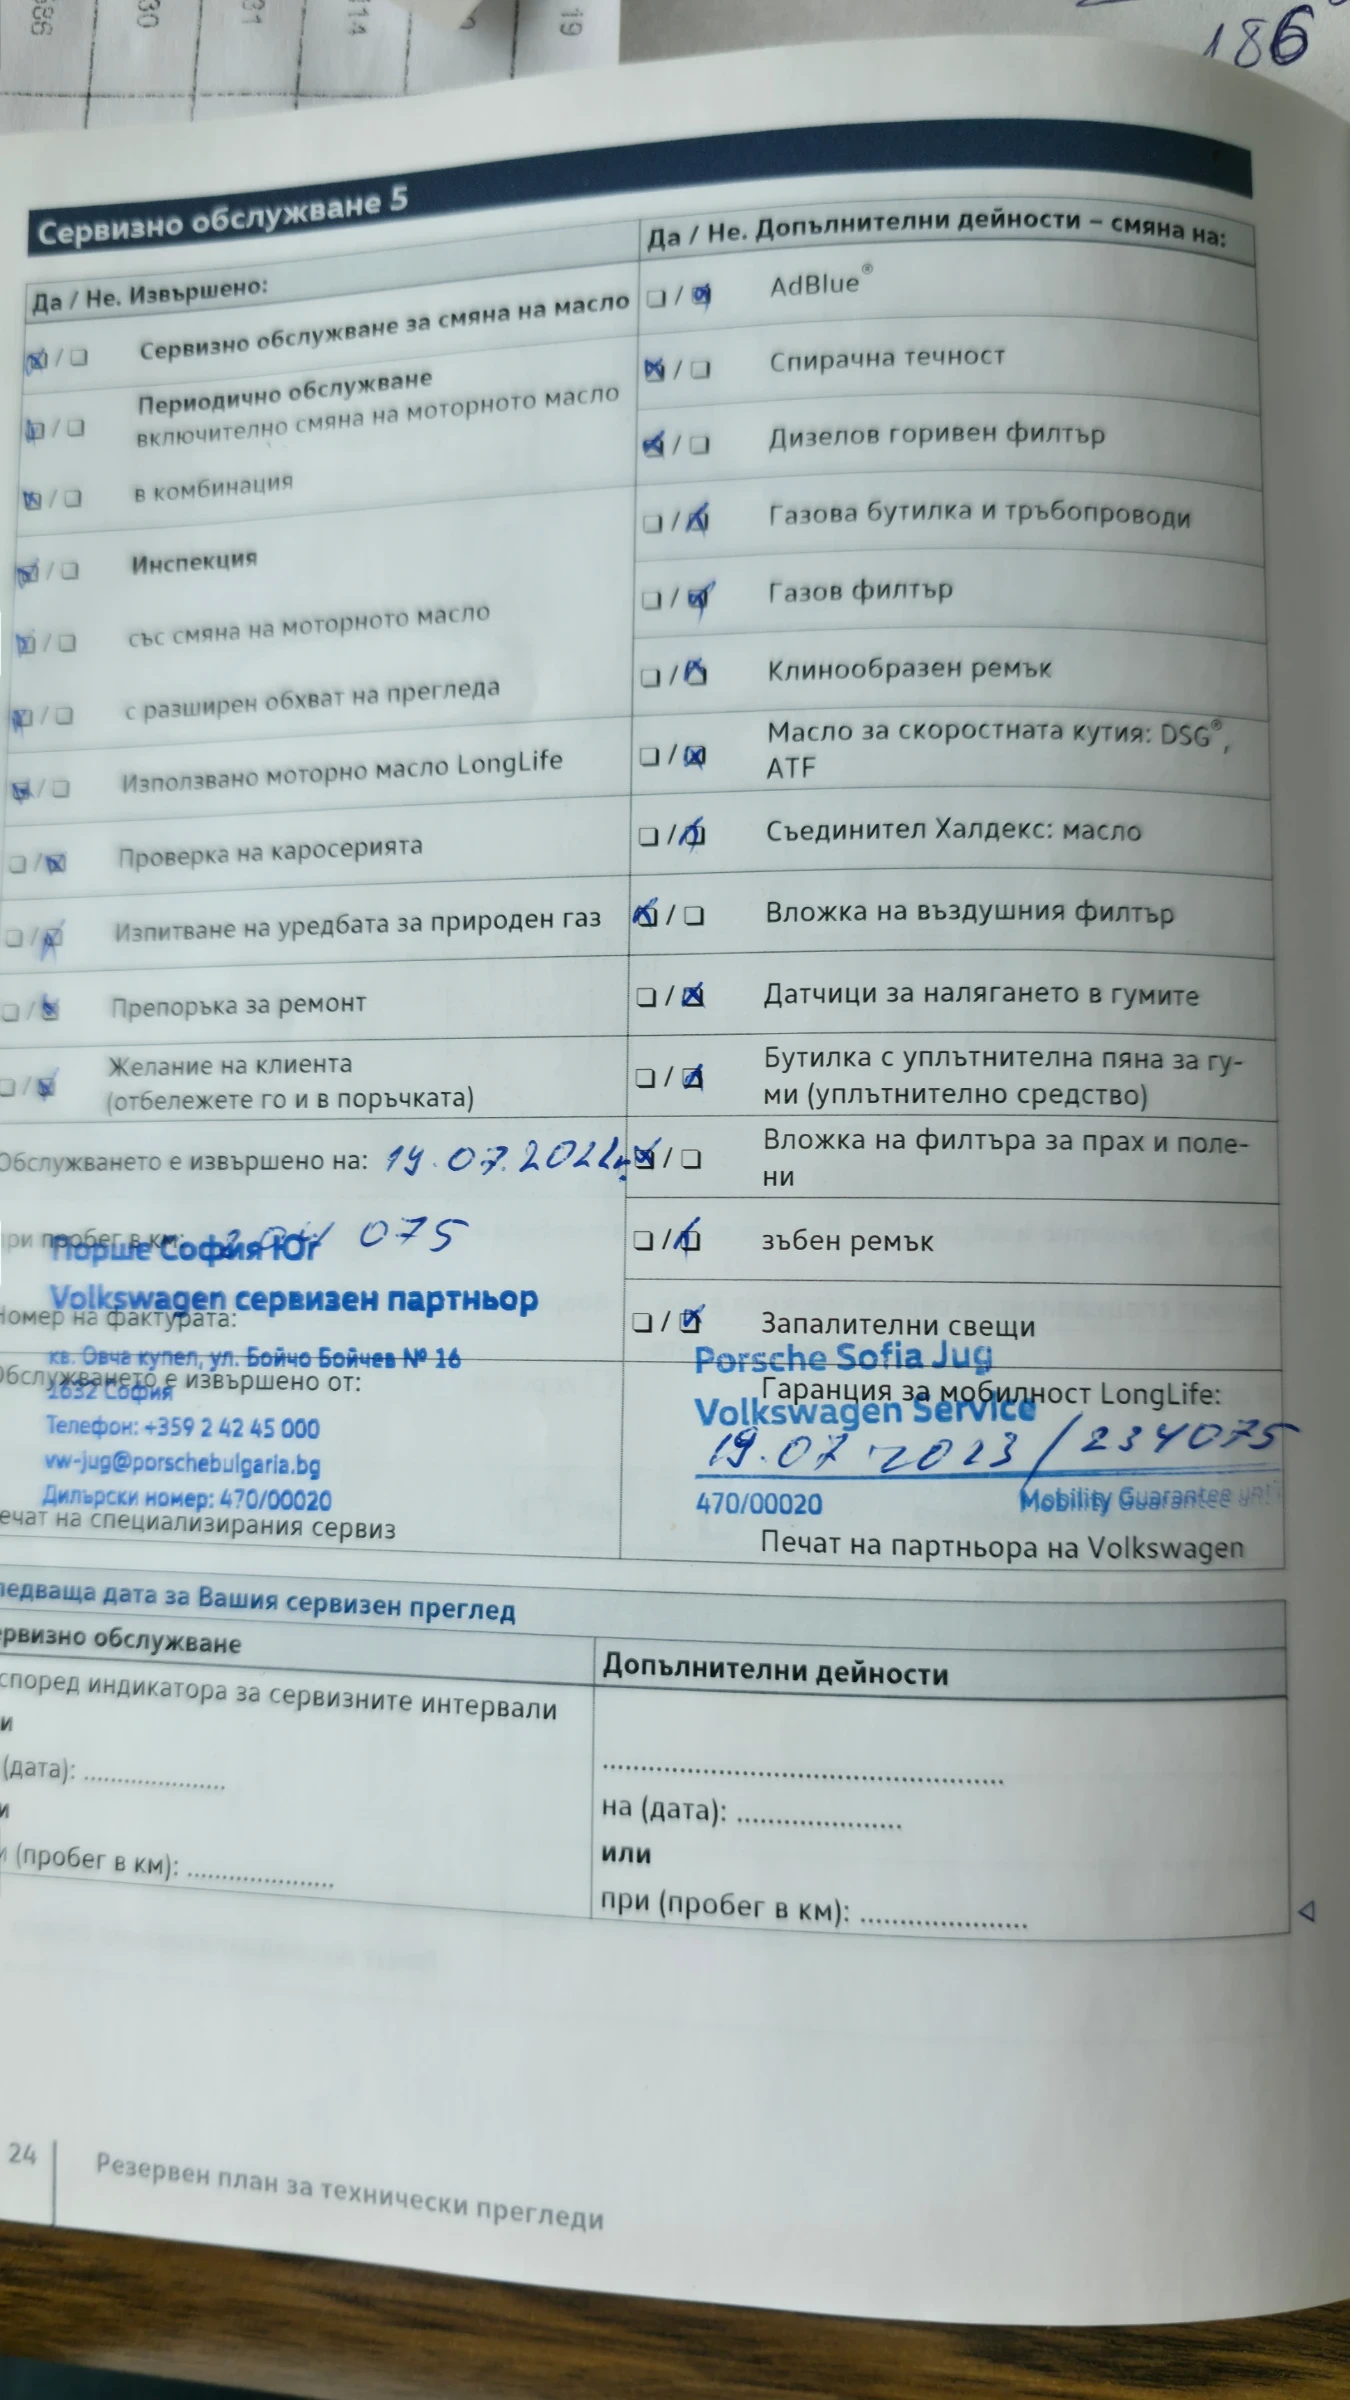 186
30
31
114
19
Сервизно обслужване 5
Да / Не. Извършено:
Сервизно обслужване за смяна на масло
Периодично обслужване
включително смяна на моторното масло
в комбинация
Инспекция
със смяна на моторното масло
с разширен обхват на прегледа
Използвано моторно масло LongLife
Проверка на каросерията
Изпитване на уредбата за природен газ
Препоръка за ремонт
Желание на клиента
(отбележете го и в поръчката)
Обслужването е извършено на: 19.07.2022г.
при пробег в км: 204 075
Порше София Юг
Volkswagen сервизен партньор
Номер на фактурата:
кв. Овча купел, ул. Бойчо Бойчев № 16
Обслужването е извършено от:
1632 София
Телефон: +359 2 42 45 000
vw-jug@porschebulgaria.bg
Дилърски номер: 470/00020
ечат на специализирания сервиз
Да / Не. Допълнителни дейности – смяна на:
AdBlue®
Спирачна течност
Дизелов горивен филтър
Газова бутилка и тръбопроводи
Газов филтър
Клинообразен ремък
Масло за скоростната кутия: DSG®,
ATF
Съединител Халдекс: масло
Вложка на въздушния филтър
Датчици за налягането в гумите
Бутилка с уплътнителна пяна за гу-
ми (уплътнително средство)
Вложка на филтъра за прах и поле-
ни
зъбен ремък
Запалителни свещи
Porsche Sofia Jug
Гаранция за мобилност LongLife:
Volkswagen Service
19.07.2023 / 234075
470/00020 Mobility Guarantee until
Печат на партньора на Volkswagen
ледваща дата за Вашия сервизен преглед
ервизно обслужване
според индикатора за сервизните интервали
и
(дата): ....................
и
и (пробег в км): ....................
Допълнителни дейности
..................................................
на (дата): ....................
или
при (пробег в км): ....................
24
Резервен план за технически прегледи